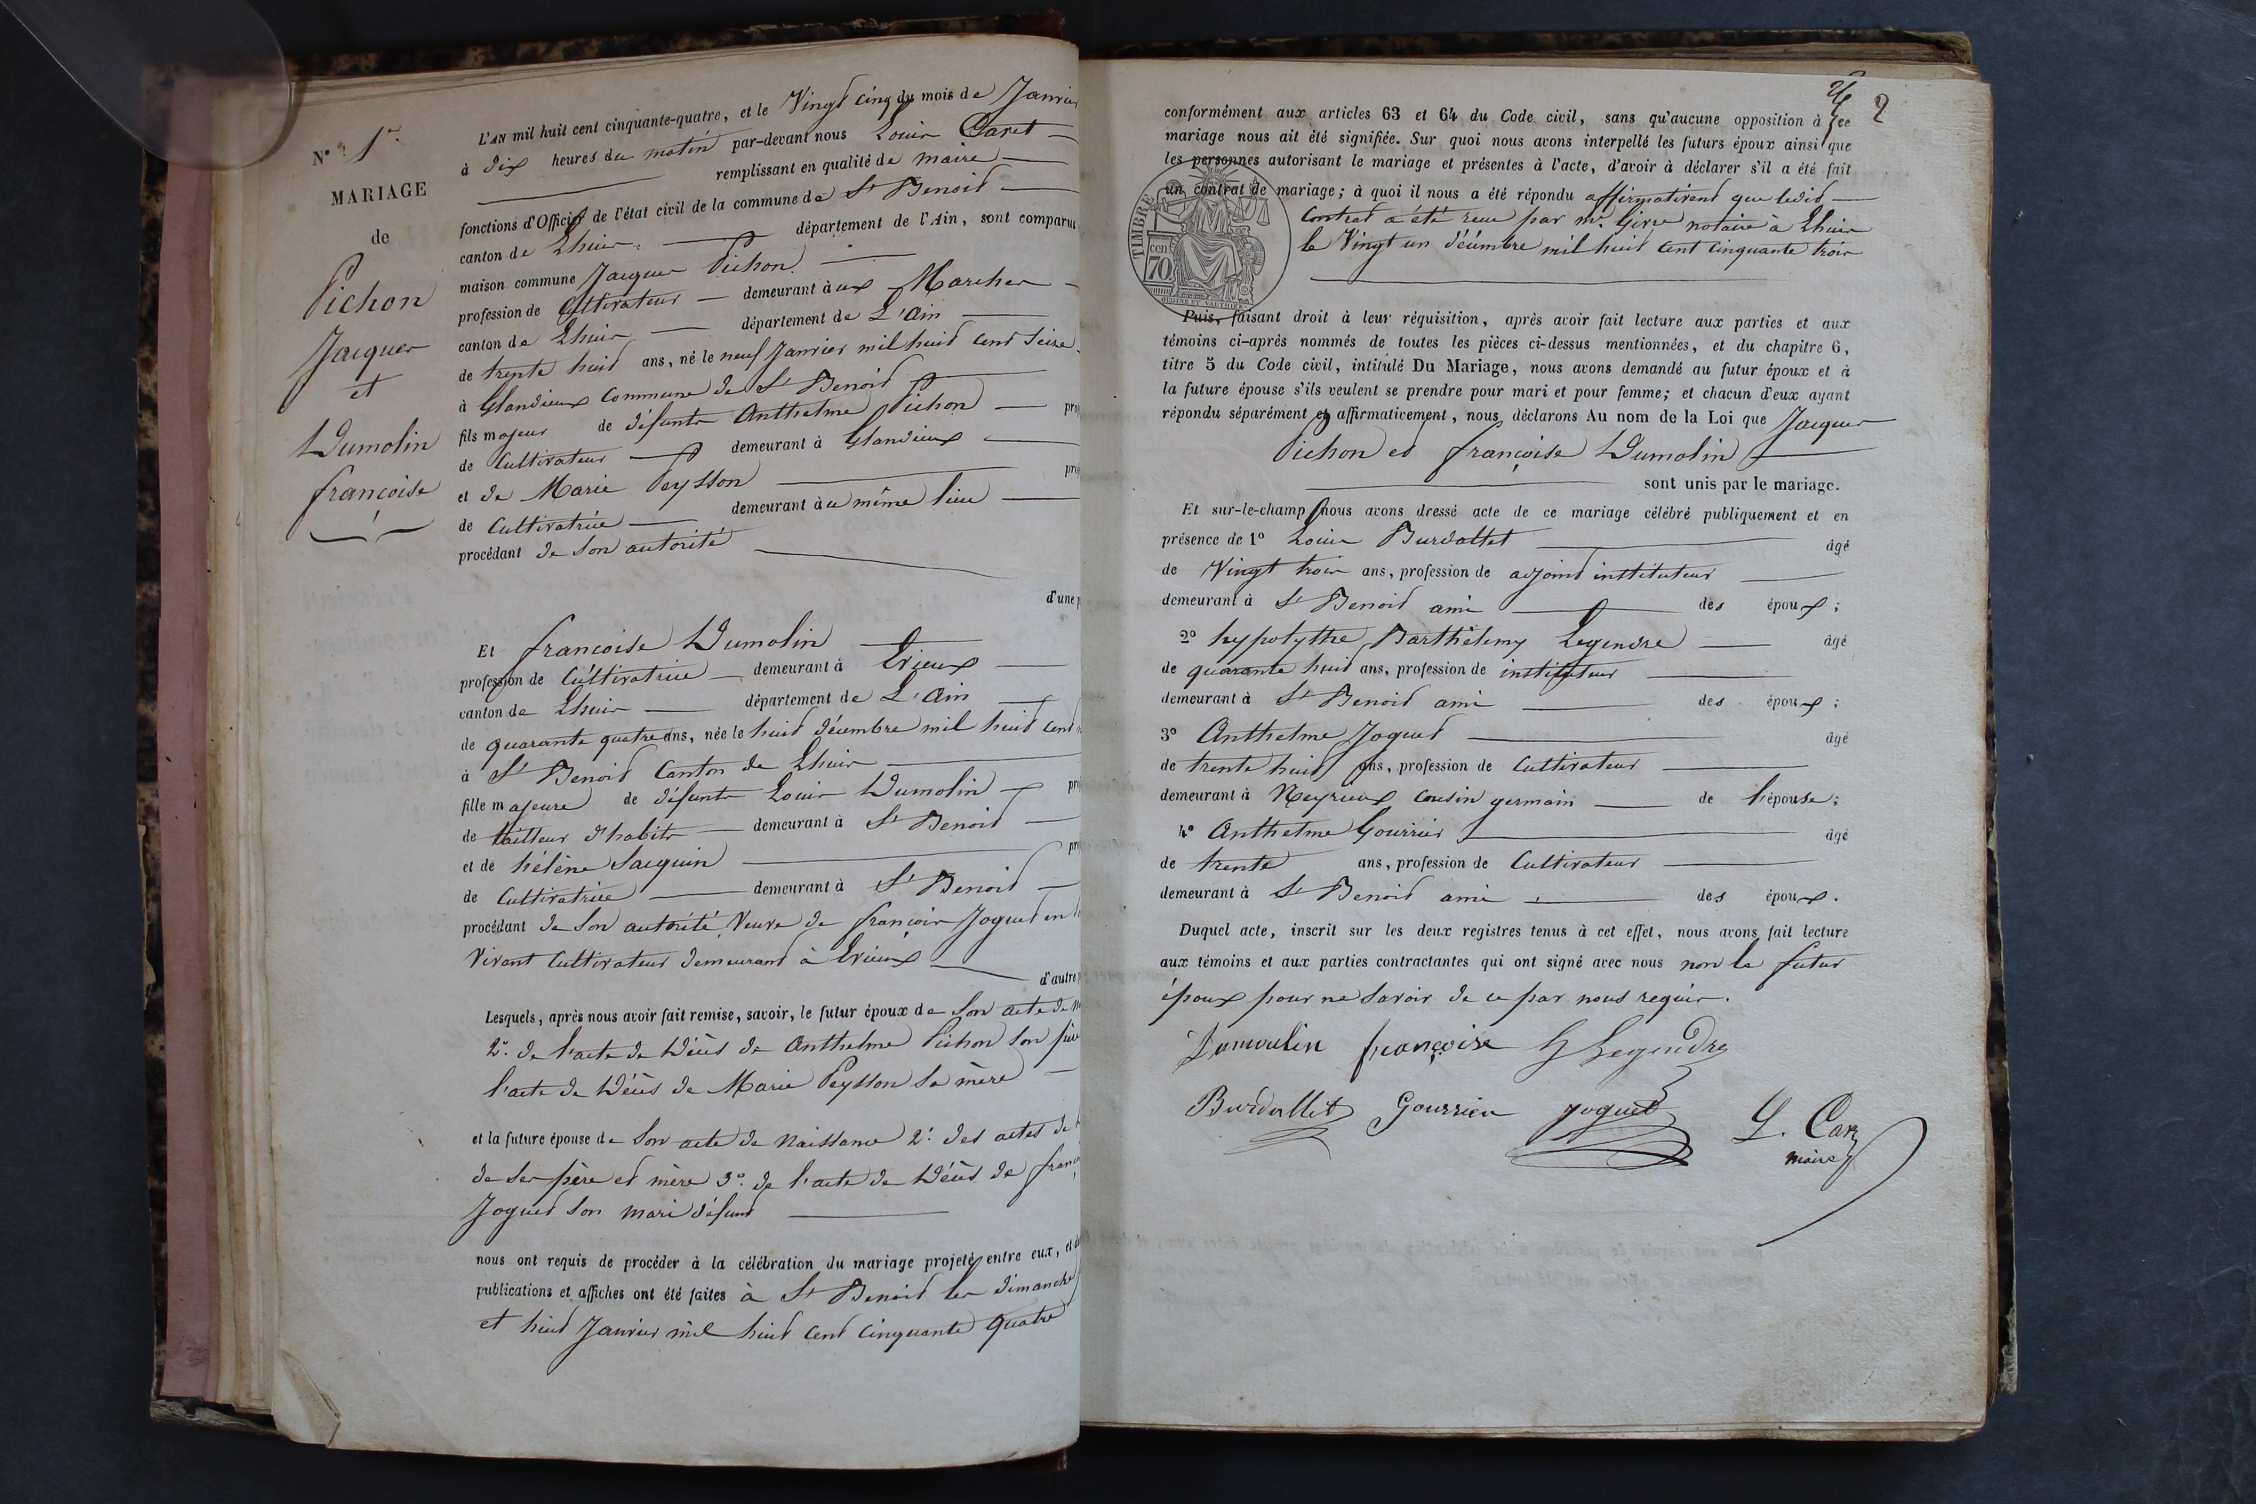 N° 1er
MARIAGE
de
Pichon
Jacques
et
Dumolin
françoise
L'AN mil huit cent cinquante-quatre, et le Vingt cinq du mois de Janvier
à dix heures du matin par-devant nous Louis
remplissant en qualité de maire
fonctions d'Officier de l'état civil de la commune de St Benoit
canton de Lhuis département de l'Ain, sont comparus
maison commune Jacques Pichon
profession de Cultivateur demeurant à aux Marches
canton de Lhuis département de L'Ain
de trente huit ans, né le neuf Janvier mil huit cent Seize
à Glandieux Commune de St Benoit
fils majeur de défunts Anthelme Pichon
de Cultivateur demeurant à Glandieux
et de Marie Peysson
de Cultivatrice demeurant à au même lieu
procédant de son autorité
d'une
Et françoise Dumolin
profession de Cultivatrice demeurant à Evieux
canton de Lhuis département de L'Ain
de quarante quatre ans, née le huit décembre mil huit cent
à St Benoit Canton de Lhuis
fille majeure de défunts Louis Dumolin
de tailleur d'habits demeurant à St Benoit
et de hélène Jacquin
de Cultivatrice demeurant à St Benoit
procédant de son autorité Veuve de françois Joguet en
Vivant Cultivateur demeurant à Evieux
d'autre
Lesquels, après nous avoir fait remise, savoir, le futur époux de Son acte de
2°. de l'acte de Décès de Anthelme Pichon son père
l'acte de Décès de Marie Peysson Sa mère
et la future épouse de Son acte de Naissance 2°. des actes de
de ses père et mère 3°. de l'acte de Décès de
Joguet Son mari défunt
nous ont requis de procéder à la célébration du mariage projeté entre eux, et
publications et affiches ont été faites à St Benoit les dimanche
et huit Janvier mil huit cent cinquante quatre
2
conformément aux articles 63 et 64 du Code civil, sans qu'aucune opposition à ce
mariage nous ait été signifiée. Sur quoi nous avons interpellé les futurs époux ainsi que
les personnes autorisant le mariage et présentes à l'acte, d'avoir à déclarer s'il a été fait
un contrat de mariage; à quoi il nous a été répondu affirmativent que ledit
Contrat a été reçu par me. Girre notaire à Lhuis
le Vingt un décembre mil huit cent cinquante trois
TIMBRE
cen
70
Puis, faisant droit à leur réquisition, après avoir fait lecture aux parties et aux
témoins ci-après nommés de toutes les pièces ci-dessus mentionnées, et du chapitre 6,
titre 5 du Code civil, intitulé Du Mariage, nous avons demandé au futur époux et à
la future épouse s'ils veulent se prendre pour mari et pour femme; et chacun d'eux ayant
répondu séparément et affirmativement, nous déclarons Au nom de la Loi que Jacques
Pichon et françoise Dumolin
sont unis par le mariage.
Et sur-le-champ nous avons dressé acte de ce mariage célébré publiquement et en
présence de 1° Louis Burdallet âgé
de Vingt trois ans, profession de adjoint instituteur
demeurant à St Benoit ami des époux;
2° hypolythe Barthélemy Legendre âgé
de quarante huit ans, profession de instituteur
demeurant à St Benoit ami des époux;
3° Anthelme Joguet âgé
de trente huit ans, profession de Cultivateur
demeurant à Neyrieux cousin germain de l'épouse;
4° Anthelme Gourrier âgé
de trente ans, profession de Cultivateur
demeurant à St Benoit ami des époux.
Duquel acte, inscrit sur les deux registres tenus à cet effet, nous avons fait lecture
aux témoins et aux parties contractantes qui ont signé avec nous non le futur
époux pour ne savoir de ce par nous requis.
Dumoulin françoise H Legendre
Burdallet Gourrier Joguet L. Car
maire